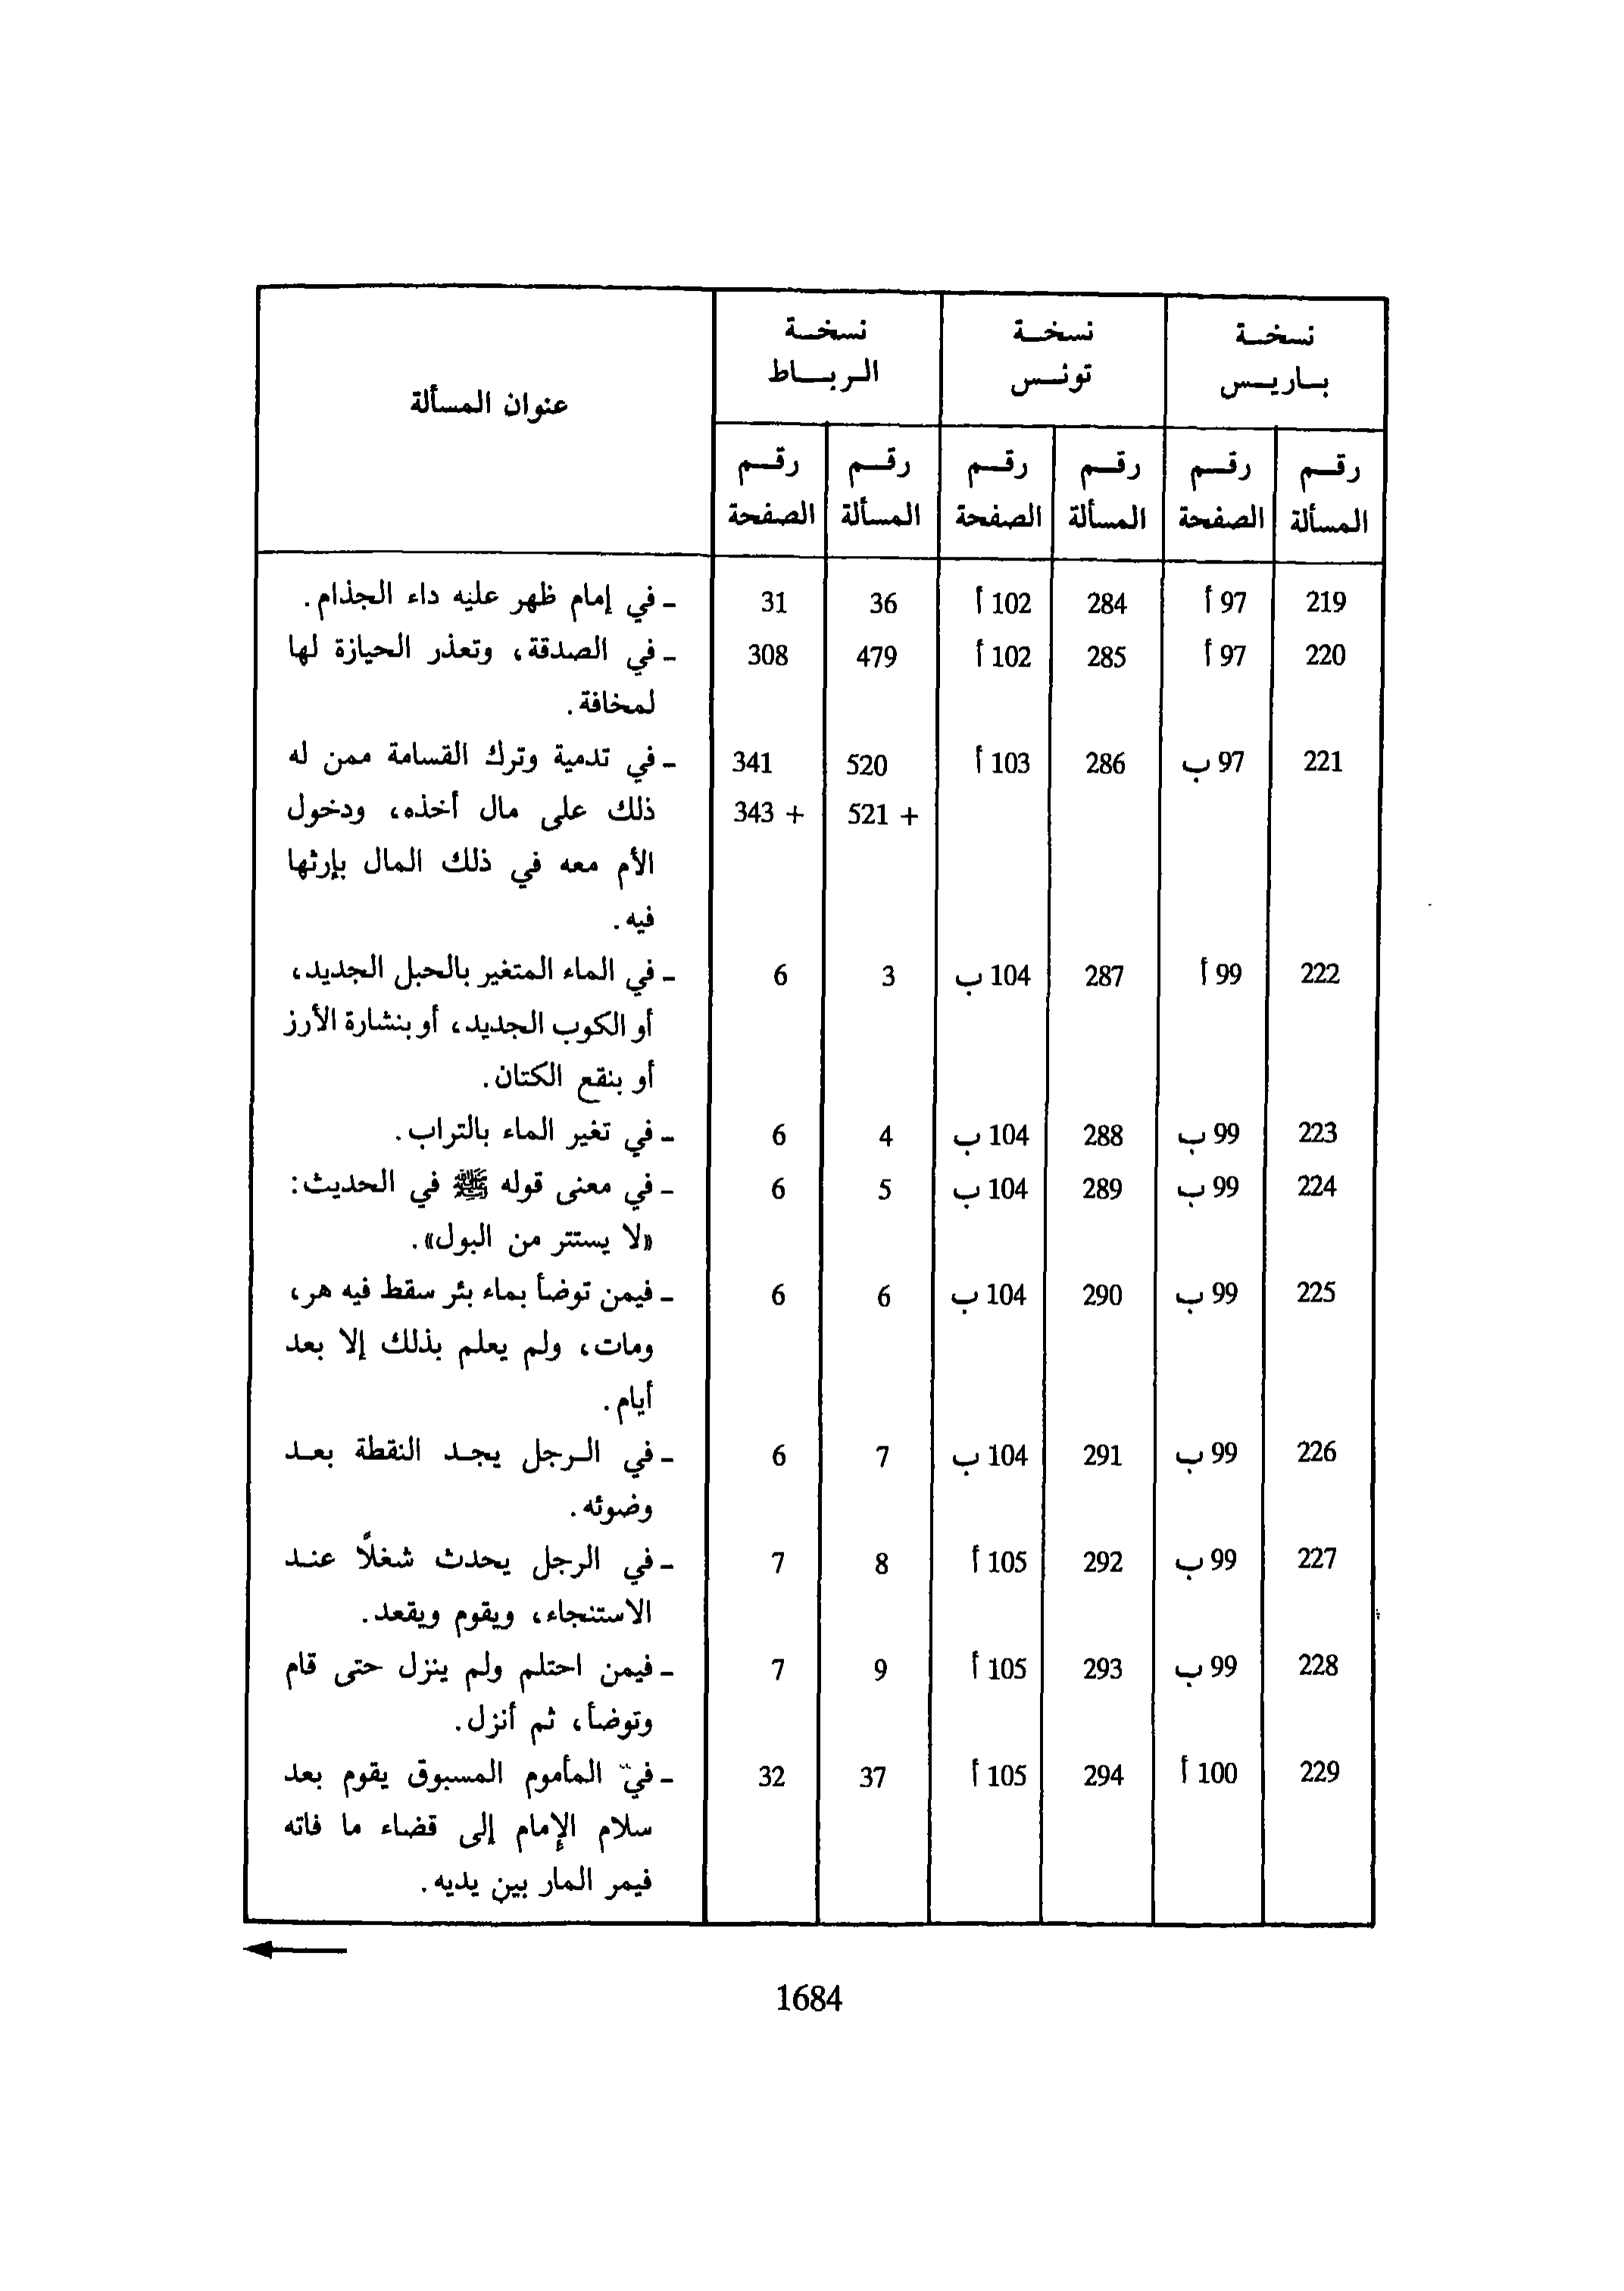 نسخة نسخة نسخة عنوان المسألة
باريس تونس الرباط
رقم رقم رقم رقم رقم رقم
المسألة الصفحة المسألة الصفحة المسألة الصفحة
219 97 أ 284 102 أ 36 31 - في إمام ظهر عليه داء الجذام.
220 97 أ 285 102 أ 479 308 - في الصدقة، وتعذر الحيازة لها
لمخافة.
221 97 ب 286 103 أ 520 341 - في تدمية وترك القسامة ممن له
+ 521 + 343 ذلك على مال أخذه، ودخول
الأم معه في ذلك المال بإرثها
فيه.
222 99 أ 287 104 ب 3 6 - في الماء المتغير بالحبل الجديد،
أو الكوب الجديد، أو بنشارة الأرز
أو بنقع الكتان.
223 99 ب 288 104 ب 4 6 - في تغير الماء بالتراب.
224 99 ب 289 104 ب 5 6 - في معنى قوله ﷺ في الحديث:
«لا يستتر من البول».
225 99 ب 290 104 ب 6 6 - فيمن توضأ بماء بئر سقط فيه هر،
ومات، ولم يعلم بذلك إلا بعد
أيام.
226 99 ب 291 104 ب 7 6 - في الرجل يجد النقطة بعد
وضوئه.
227 99 ب 292 105 أ 8 7 - في الرجل يحدث شغلاً عند
الاستنجاء، ويقوم ويقعد.
228 99 ب 293 105 أ 9 7 - فيمن احتلم ولم ينزل حتى قام
وتوضأ، ثم أنزل.
229 100 أ 294 105 أ 37 32 - في المأموم المسبوق يقوم بعد
سلام الإمام إلى قضاء ما فاته
فيمر المار بين يديه.
1684